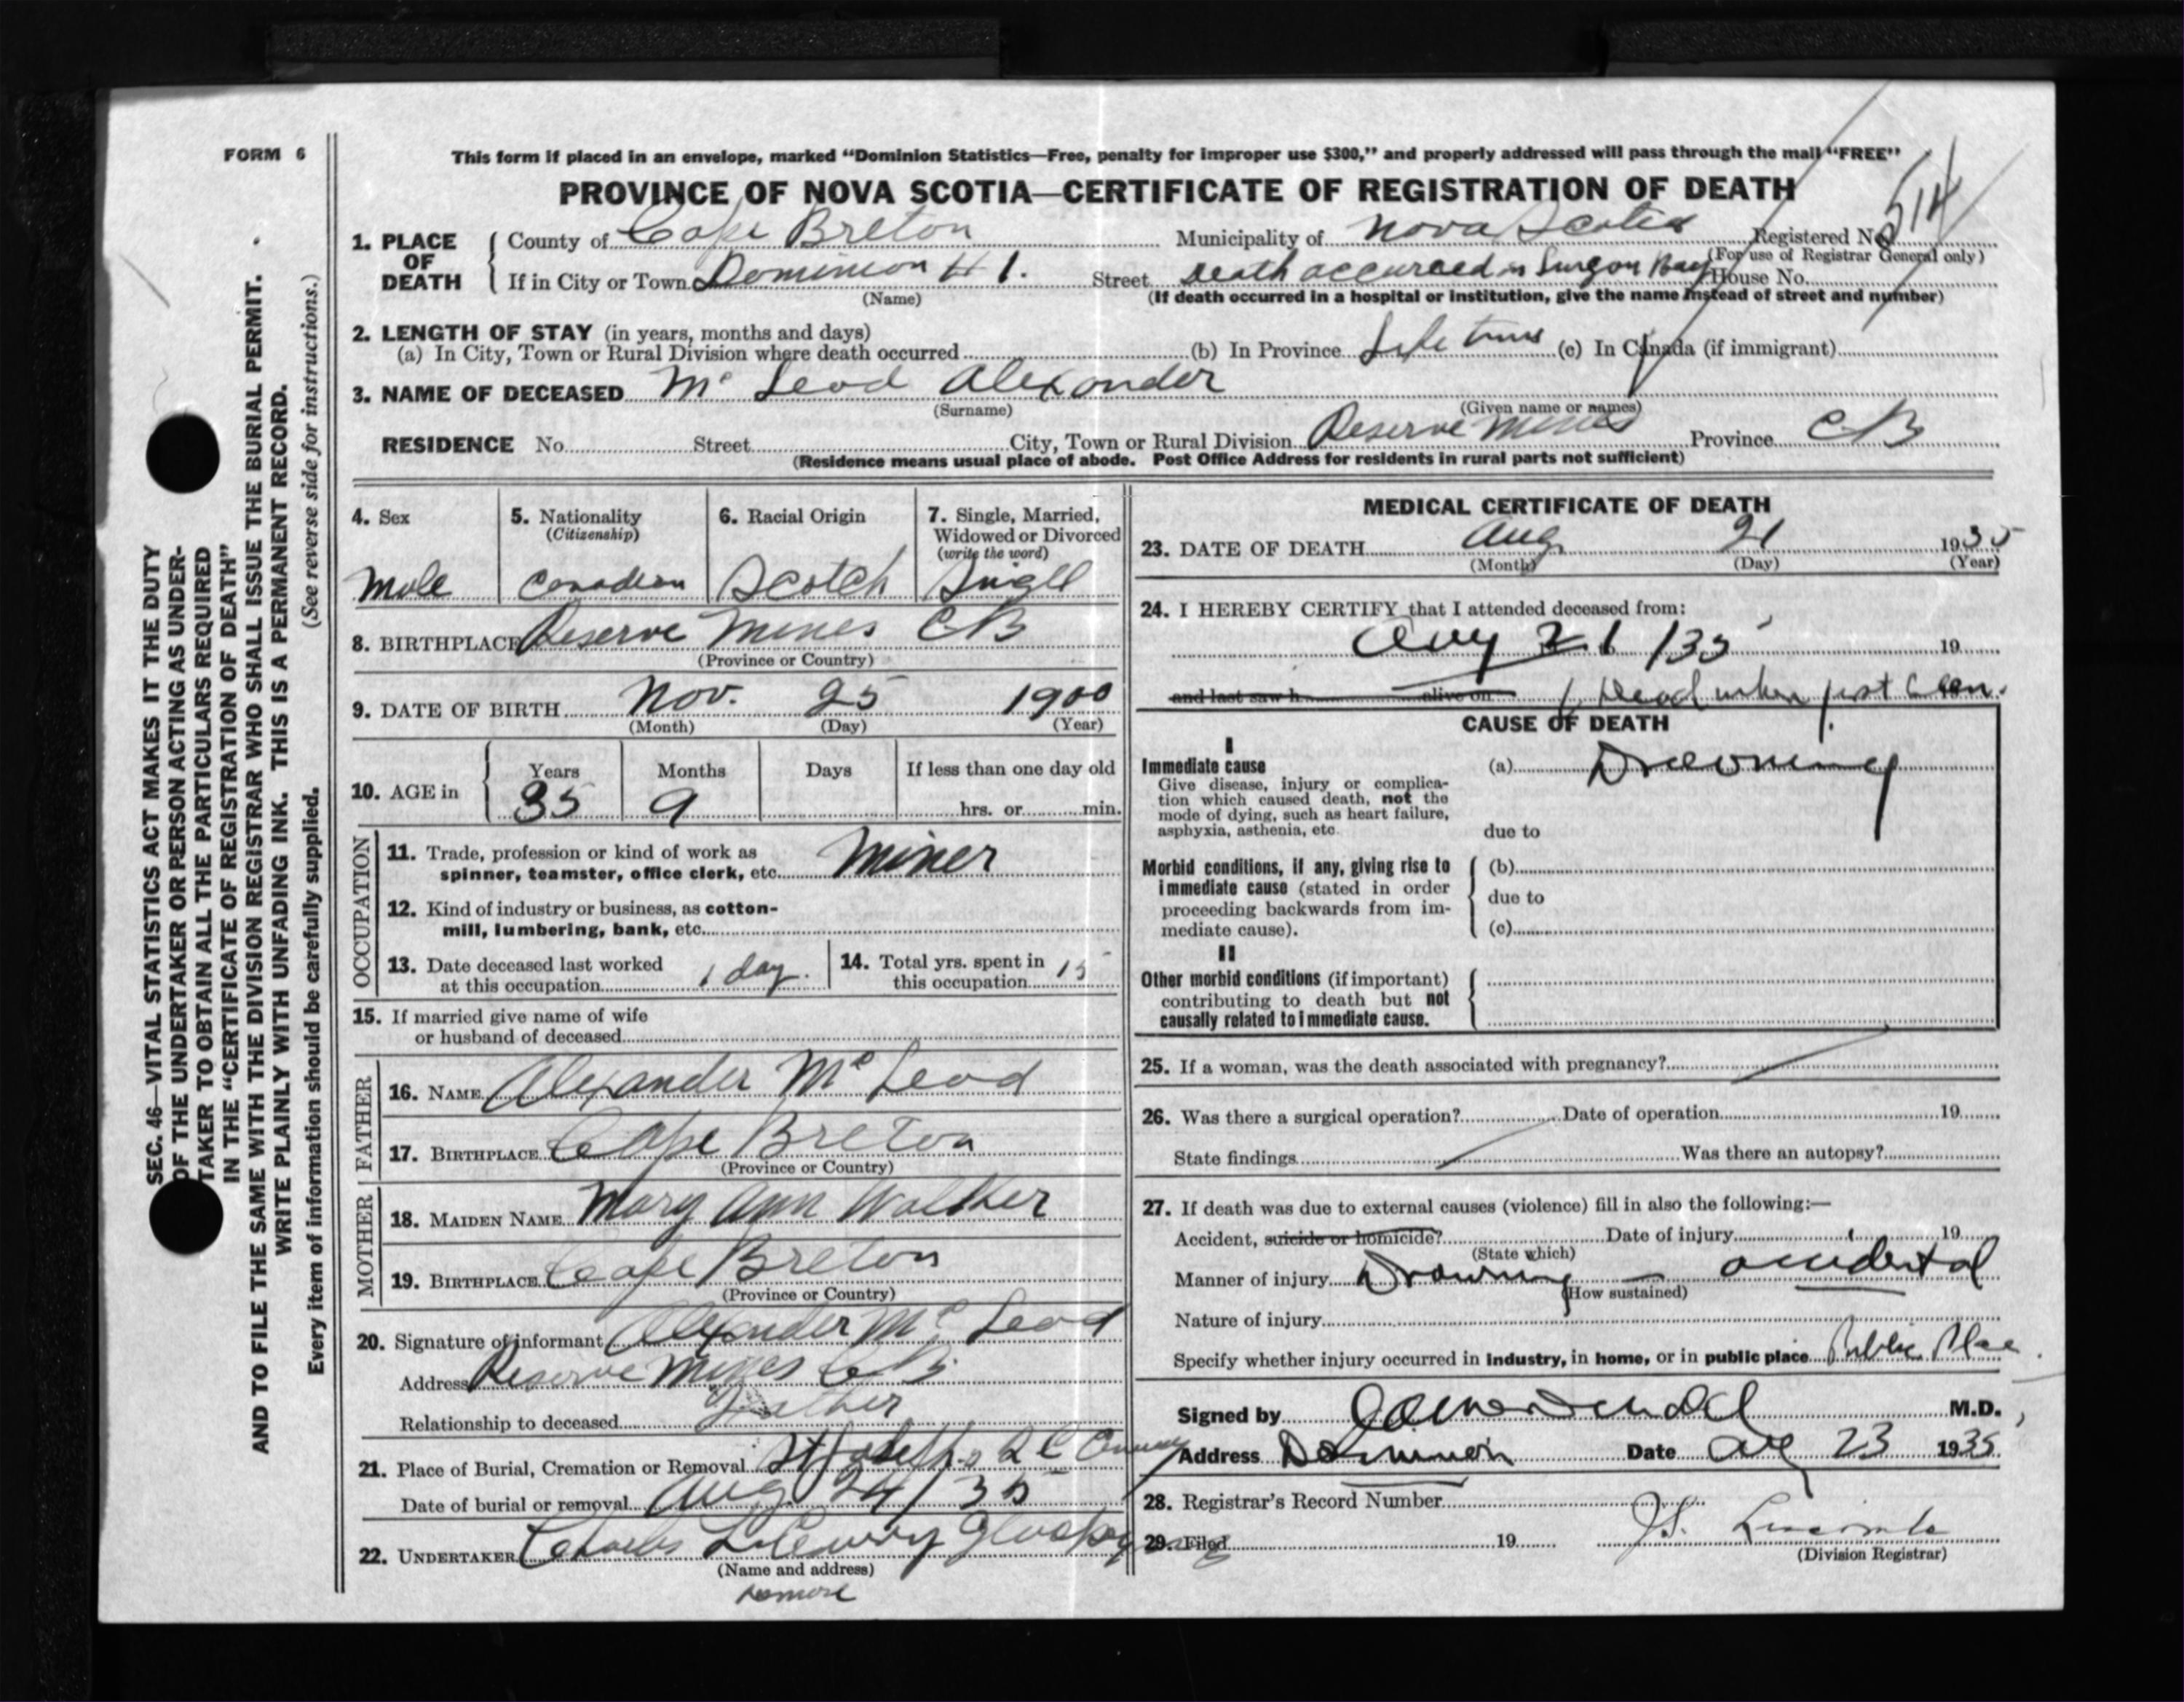 FORM 6
This form if placed in an envelope, marked “Dominion Statistics—Free, penalty for improper use $300,” and properly addressed will pass through the mail “FREE”
PROVINCE OF NOVA SCOTIA—CERTIFICATE OF REGISTRATION OF DEATH
1. PLACE OF DEATH { County of Cape Breton Municipality of Nova Scotia Registered No. 514
(For use of Registrar General only)
If in City or Town Dominion # 1. Street Death occurred in Surgon Bay House No.
(Name) (If death occurred in a hospital or institution, give the name instead of street and number)
2. LENGTH OF STAY (in years, months and days)
(a) In City, Town or Rural Division where death occurred (b) In Province Life time (c) In Canada (if immigrant)
3. NAME OF DECEASED Mc Leod Alexander
(Surname) (Given name or names)
RESIDENCE No. Street City, Town or Rural Division Reserve Mines Province CB
(Residence means usual place of abode. Post Office Address for residents in rural parts not sufficient)
4. Sex
Male
5. Nationality
(Citizenship)
Canadian
6. Racial Origin
Scotch
7. Single, Married,
Widowed or Divorced
(write the word)
Singll
8. BIRTHPLACE Reserve Mines CB
(Province or Country)
9. DATE OF BIRTH Nov. 25 1900
(Month) (Day) (Year)
10. AGE in { Years Months Days If less than one day old
35 9 hrs. or min.
OCCUPATION
11. Trade, profession or kind of work as
spinner, teamster, office clerk, etc. Miner
12. Kind of industry or business, as cotton-
mill, lumbering, bank, etc.
13. Date deceased last worked
at this occupation 1 day.
14. Total yrs. spent in
this occupation 15
15. If married give name of wife
or husband of deceased
FATHER
16. NAME Alexander Mc Leod
17. BIRTHPLACE Cape Breton
(Province or Country)
MOTHER
18. MAIDEN NAME Mary Ann Walker
19. BIRTHPLACE Cape Breton
(Province or Country)
20. Signature of informant Alexander Mc Leod
Address Reserve Mines C B.
Relationship to deceased Father
21. Place of Burial, Cremation or Removal St Josephs R C
Date of burial or removal Aug 24/35
22. UNDERTAKER Charles
(Name and address)
MEDICAL CERTIFICATE OF DEATH
23. DATE OF DEATH Aug 21 1935
(Month) (Day) (Year)
24. I HEREBY CERTIFY that I attended deceased from:
Aug 21/35 19
and last saw h alive on Dead when first seen.
CAUSE OF DEATH
I
Immediate cause
Give disease, injury or complica-
tion which caused death, not the
mode of dying, such as heart failure,
asphyxia, asthenia, etc.
(a) Drowning
due to
Morbid conditions, if any, giving rise to
immediate cause (stated in order
proceeding backwards from im-
mediate cause).
(b)
due to
(c)
II
Other morbid conditions (if important)
contributing to death but not
causally related to immediate cause.
25. If a woman, was the death associated with pregnancy?
26. Was there a surgical operation? Date of operation 19
State findings Was there an autopsy?
27. If death was due to external causes (violence) fill in also the following:—
Accident, suicide or homicide? Date of injury 19
(State which)
Manner of injury Drowning — accidental
(How sustained)
Nature of injury
Specify whether injury occurred in industry, in home, or in public place Public Place
Signed by M.D.
Address Dominion Date Aug 23 1935
28. Registrar's Record Number
29. Filed 19
(Division Registrar)
SEC. 46—VITAL STATISTICS ACT MAKES IT THE DUTY
OF THE UNDERTAKER OR PERSON ACTING AS UNDER-
TAKER TO OBTAIN ALL THE PARTICULARS REQUIRED
IN THE “CERTIFICATE OF REGISTRATION OF DEATH”
AND TO FILE THE SAME WITH THE DIVISION REGISTRAR WHO SHALL ISSUE THE BURIAL PERMIT.
WRITE PLAINLY WITH UNFADING INK. THIS IS A PERMANENT RECORD.
Every item of information should be carefully supplied. (See reverse side for instructions.)